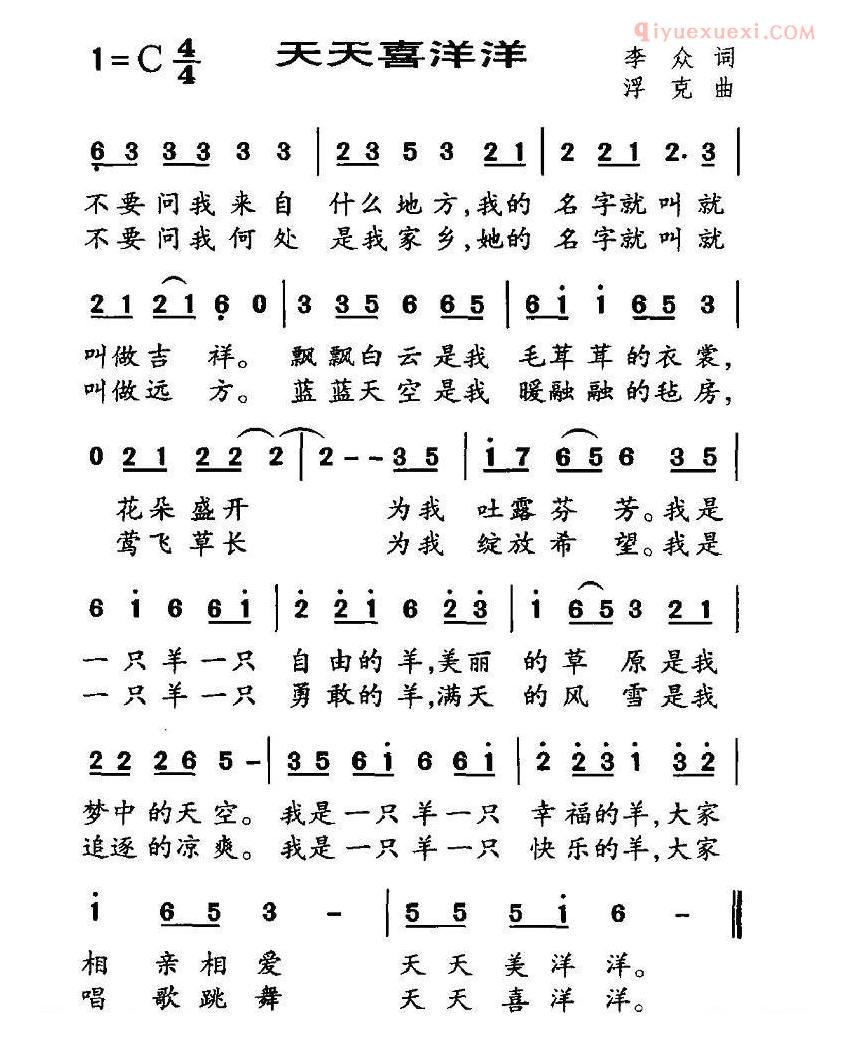 qiyuexuexi.com
1=C 4/4 天天喜洋洋 李众词
浮克曲
6 3 3 3 3 3 | 2 3 5 3 2 1 | 2 2 1 2. 3 |
不要问我来自 什么地方,我的 名字就叫就
不要问我何处 是我家乡,她的 名字就叫就
2 1 2 1 6 0 | 3 3 5 6 6 5 | 6 i i 6 5 3 |
叫做吉祥。飘飘白云是我 毛茸茸的衣裳,
叫做远方。蓝蓝天空是我 暖融融的毡房,
0 2 1 2 2 2 | 2 - - 3 5 | i 7 6 5 6 3 5 |
花朵盛开 为我 吐露芬芳。我是
莺飞草长 为我 绽放希望。我是
6 i 6 6 i | 2 2 i 6 2 3 | i 6 5 3 2 1 |
一只羊一只 自由的羊,美丽 的草原是我
一只羊一只 勇敢的羊,满天 的风雪是我
2 2 2 6 5 - | 3 5 6 i 6 6 i | 2 2 3 i 3 2 |
梦中的天空。我是一只羊一只 幸福的羊,大家
追逐的凉爽。我是一只羊一只 快乐的羊,大家
i 6 5 3 - | 5 5 5 i 6 - ‖
相亲相爱 天天美洋洋。
唱歌跳舞 天天喜洋洋。